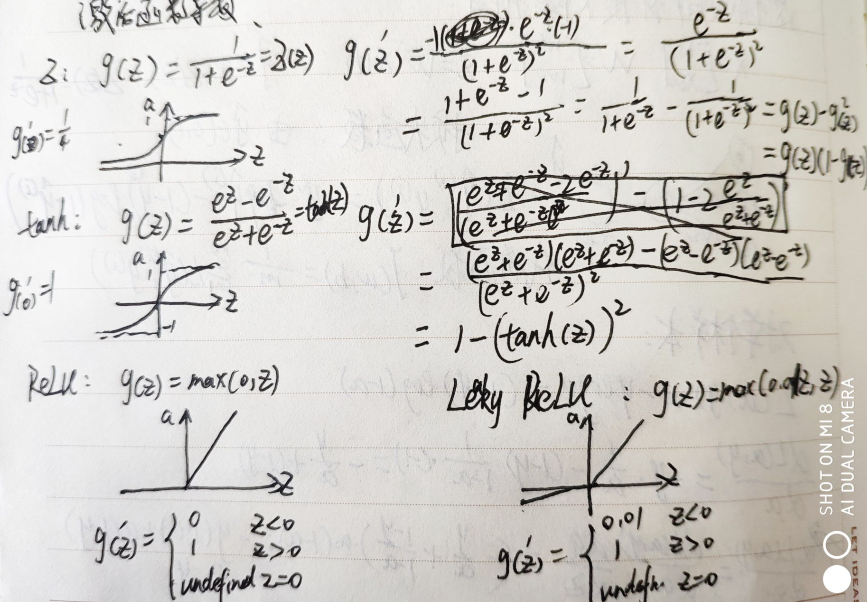 激活函数导数、
Z: g(z) = 1/(1+e^-z) = Z(z) g'(z) = -1·e^-z·(-1)/(1+e^-z)^2 = e^-z/(1+e^-z)^2
= (1+e^-z-1)/(1+e^-z)^2 = 1/(1+e^-z) - 1/(1+e^-z)^2 = g(z)-g^2(z)
= g(z)(1-g(z))
a
1
z
g'(0)=1/4
tanh: g(z) = (e^z-e^-z)/(e^z+e^-z) = tanh(z) g'(z) =
= ((e^z+e^-z)(e^z+e^-z)-(e^z-e^-z)(e^z-e^-z))/(e^z+e^-z)^2
= 1-(tanh(z))^2
a
1
z
-1
g'(0)=1
ReLU: g(z) = max(0,z)
a
z
g'(z) = { 0 z<0
1 z>0
undefined z=0
Leky ReLU : g(z)=max(0.01z, z)
a
z
g'(z) = { 0.01 z<0
1 z>0
undefin. z=0
SHOT ON MI 8
AI DUAL CAMERA
LET IDEAS